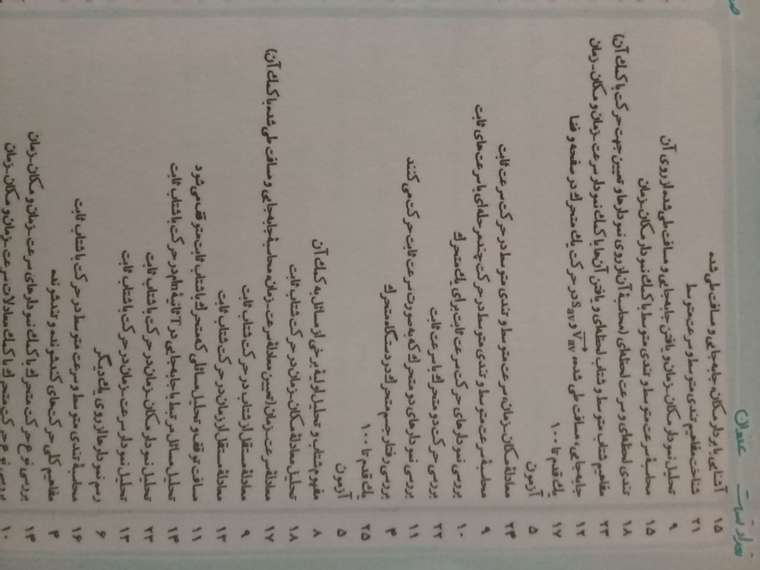 تعداد تست عنوان
۱۵ آشنایی با بردار مکان، جابه‌جایی و مسافت طی شده
۲۱ شناخت مفاهیم تندی متوسط و سرعت متوسط
۹ تحلیل نمودار مکان ـ زمان و یافتن جابه‌جایی و مسافت طی شده از روی آن
۱۵ محاسبهٔ سرعت متوسط و تندی متوسط با کمک نمودار مکان ـ زمان
۱۸ تندی لحظه‌ای و سرعت لحظه‌ای (محاسبهٔ آن از روی نمودارها و تعیین جهت حرکت با کمک آن)
۲۳ مفاهیم شتاب متوسط و شتاب لحظه‌ای و یافتن آن‌ها با کمک نمودار سرعت ـ زمان و مکان ـ زمان
۱۲ جابه‌جایی، مسافت طی شده، Vav و Sav در حرکت یک متحرک در صفحه و فضا
۱۷ یک قدم تا ۱۰۰
۵ آزمون
۲۳ معادلهٔ مکان ـ زمان، سرعت متوسط و تندی متوسط در حرکت سرعت ثابت
۹ محاسبهٔ سرعت متوسط و تندی متوسط در حرکت چندمرحله‌ای با سرعت‌های ثابت
۱۰ بررسی نمودارهای حرکت سرعت ثابت برای یک متحرک
۲۲ بررسی حرکت دو متحرک با سرعت ثابت
۱۱ بررسی نمودارهای دو متحرک که به صورت سرعت ثابت حرکت می‌کنند
۳ بررسی رفتار جسم متحرک در دستگاه متحرک
۲۵ یک قدم تا ۱۰۰
۵ آزمون
۸ مفهوم شتاب و تحلیل اولیهٔ برخی از مسائل به کمک آن
۱۸ تحلیل معادلهٔ مکان ـ زمان در حرکت شتاب ثابت
۱۷ معادلهٔ سرعت ـ زمان (تعیین معادلهٔ سرعت ـ زمان، محاسبهٔ جابه‌جایی و مسافت طی شده با کمک آن)
۹ معادلهٔ مستقل از شتاب در حرکت شتاب ثابت
۱۳ معادلهٔ مستقل از زمان در حرکت شتاب ثابت
۱۱ مسافت توقف و تحلیل مسائلی که متحرک با شتاب ثابت متوقف می‌شود
۱۳ تحلیل مسائل مرتبط با جابه‌جایی در T ثانیهٔ nام در حرکت با شتاب ثابت
۲۲ تحلیل نمودار مکان ـ زمان در حرکت با شتاب ثابت
۱۳ تحلیل نمودار سرعت ـ زمان در حرکت با شتاب ثابت
۶ رسم نمودارها از روی یک‌دیگر
۱۶ محاسبهٔ تندی متوسط و سرعت متوسط در حرکت با شتاب ثابت
۳ مفاهیم کلی حرکت‌های کندشونده و تندشونده
۱۳ بررسی نوع حرکت متحرک با کمک نمودارهای سرعت ـ زمان و مکان ـ زمان
۱۰ بررسی نوع حرکت متحرک با کمک معادلات سرعت ـ زمان و مکان ـ زمان